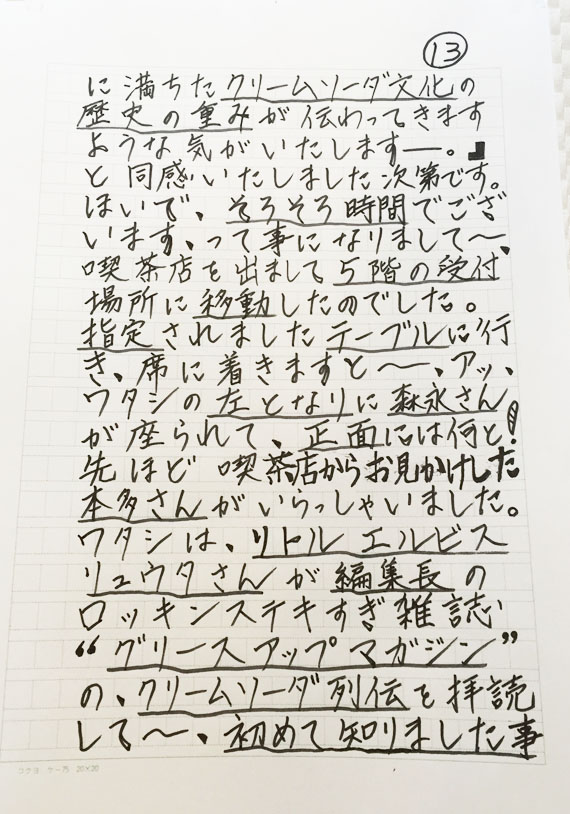 ⑬
に満ちたクリームソーダ文化の
歴史の重みが伝わってきます
ような気がいたします―。』
と同感いたしました次第です。
ほいで、そろそろ時間でござ
います、って事になりまして〜、
喫茶店を出まして5階の受付
場所に移動したのでした。
指定されましたテーブルに行
き、席に着きますと〜、アッ、
ワタシの左となりに森永さん
が座られて、正面には何と!
先ほど喫茶店からお見かけした
本多さんがいらっしゃいました。
ワタシは、リトルエルビス
リュウタさんが編集長の
ロッキンステキすぎ雑誌、
“グリースアップマガジン”
の、クリームソーダ列伝を拝読
して〜、初めて知りました事
コクヨ ケー75 20×20